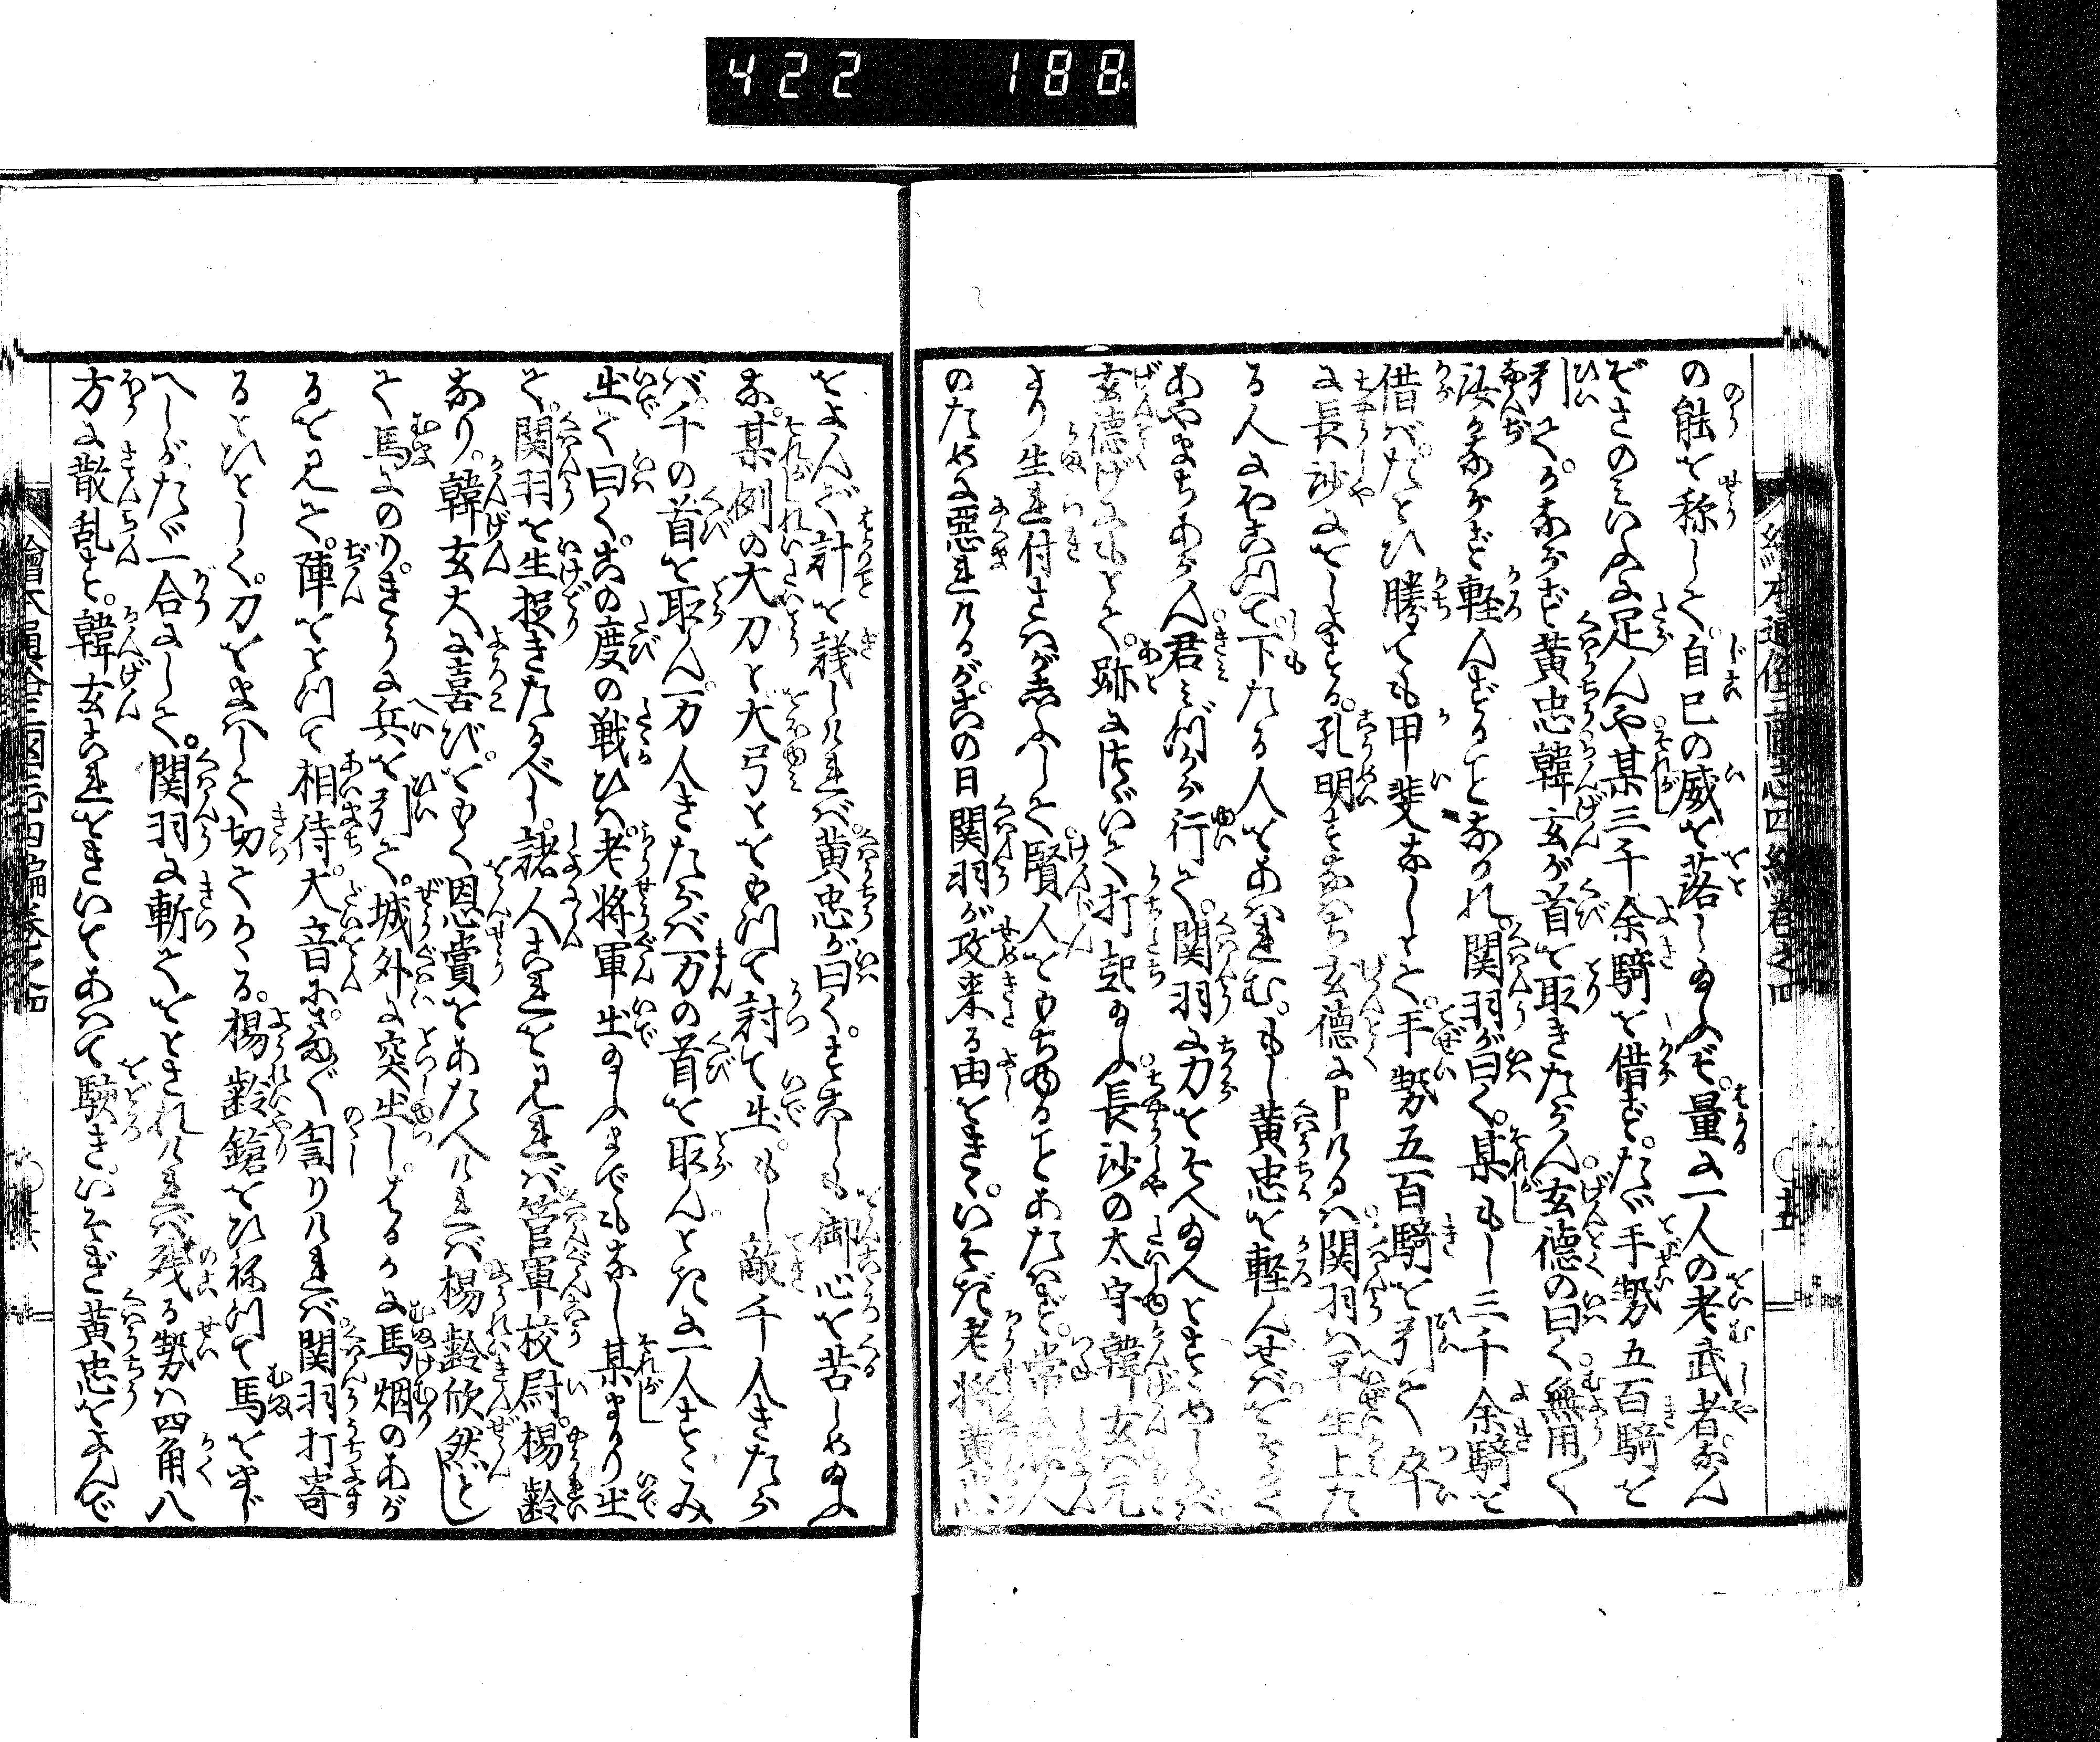 422 188
の能を称して。自己の威を落し給ふぞ。量に一人の老武者なん
ぞさのみいふに足んや某三千余騎を借ず。たゞ手勢五百騎を
引て。かならず黄忠韓玄が首を取きたらん。玄徳の曰く無用く
汝かならず軽んずることなかれ。関羽が曰く。某もし三千余騎を
借ば。たとひ勝ても甲斐なしとて。手勢五百騎を引て卒
に長沙にをしよする。孔明すなはち玄徳に申けるは関羽は平生上た
る人にやはつて下たる人をあはれむ。もし黄忠を軽んぜば。をそらく
あやまちあらん君みづから行て。関羽に力をそへ給へとすゝめしかば
玄徳げにもとて。跡につゞいて打起給ふ長沙の太守韓玄は元
より生れ付さはがしふして賢人をもちゆることあたはず。常に人
のために悪まれけるが。此の日関羽が攻来る由をきゝ。いそぎ老将黄忠
をよんで計を議しければ。黄忠が曰く。すこしも御心を苦しめ給ふ
な。某例の大刀と大弓とをもつて討て出。もし敵千人きたら
ば。千の首を取ん。万人きたらば万の首を取んとたゞ一人すゝみ
出て曰く。此の度の戦ひは。老将軍出給ふまでもなし某まかり出
て。関羽を生捉きたるべし。諸人これを見れば管軍校尉。楊齢
なり。韓玄大に喜び。をもく恩賞をあたへければ楊齢欣然として
て馬にのり。きうに兵を引て。城外に突出し。はるかに馬烟のあが
るを見て。陣をとつて相待。大音あげて詈りければ関羽打寄
るとひとしく。刀をまはして切てかゝる。楊齢鎗をひねつて馬をまじ
へしがたゞ一合にして。関羽に斬てをとされければ残る勢は四角八
方に散乱す。韓玄これをきいてあはて駭き。いそぎ黄忠をよんで